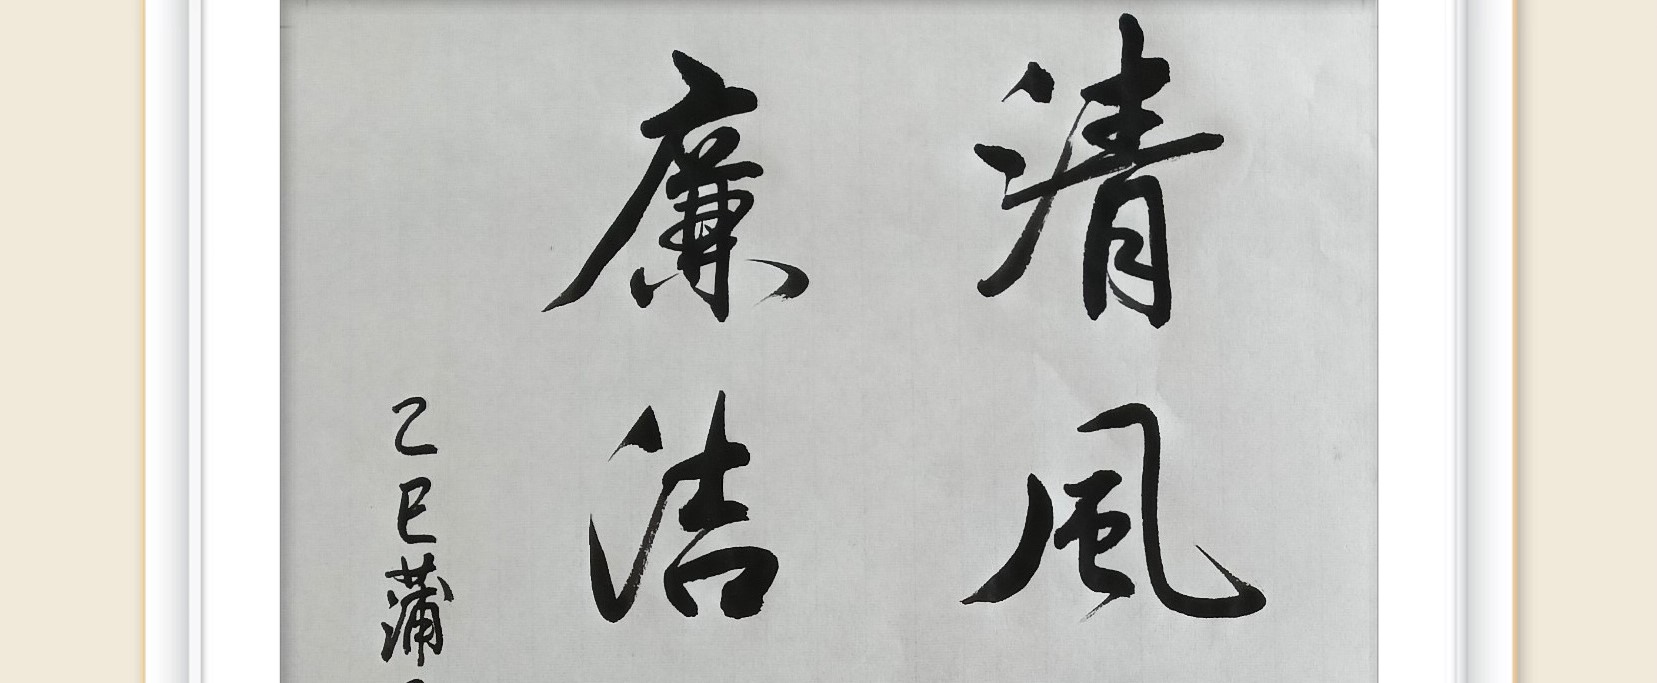 清風
廉洁
乙巳蒲